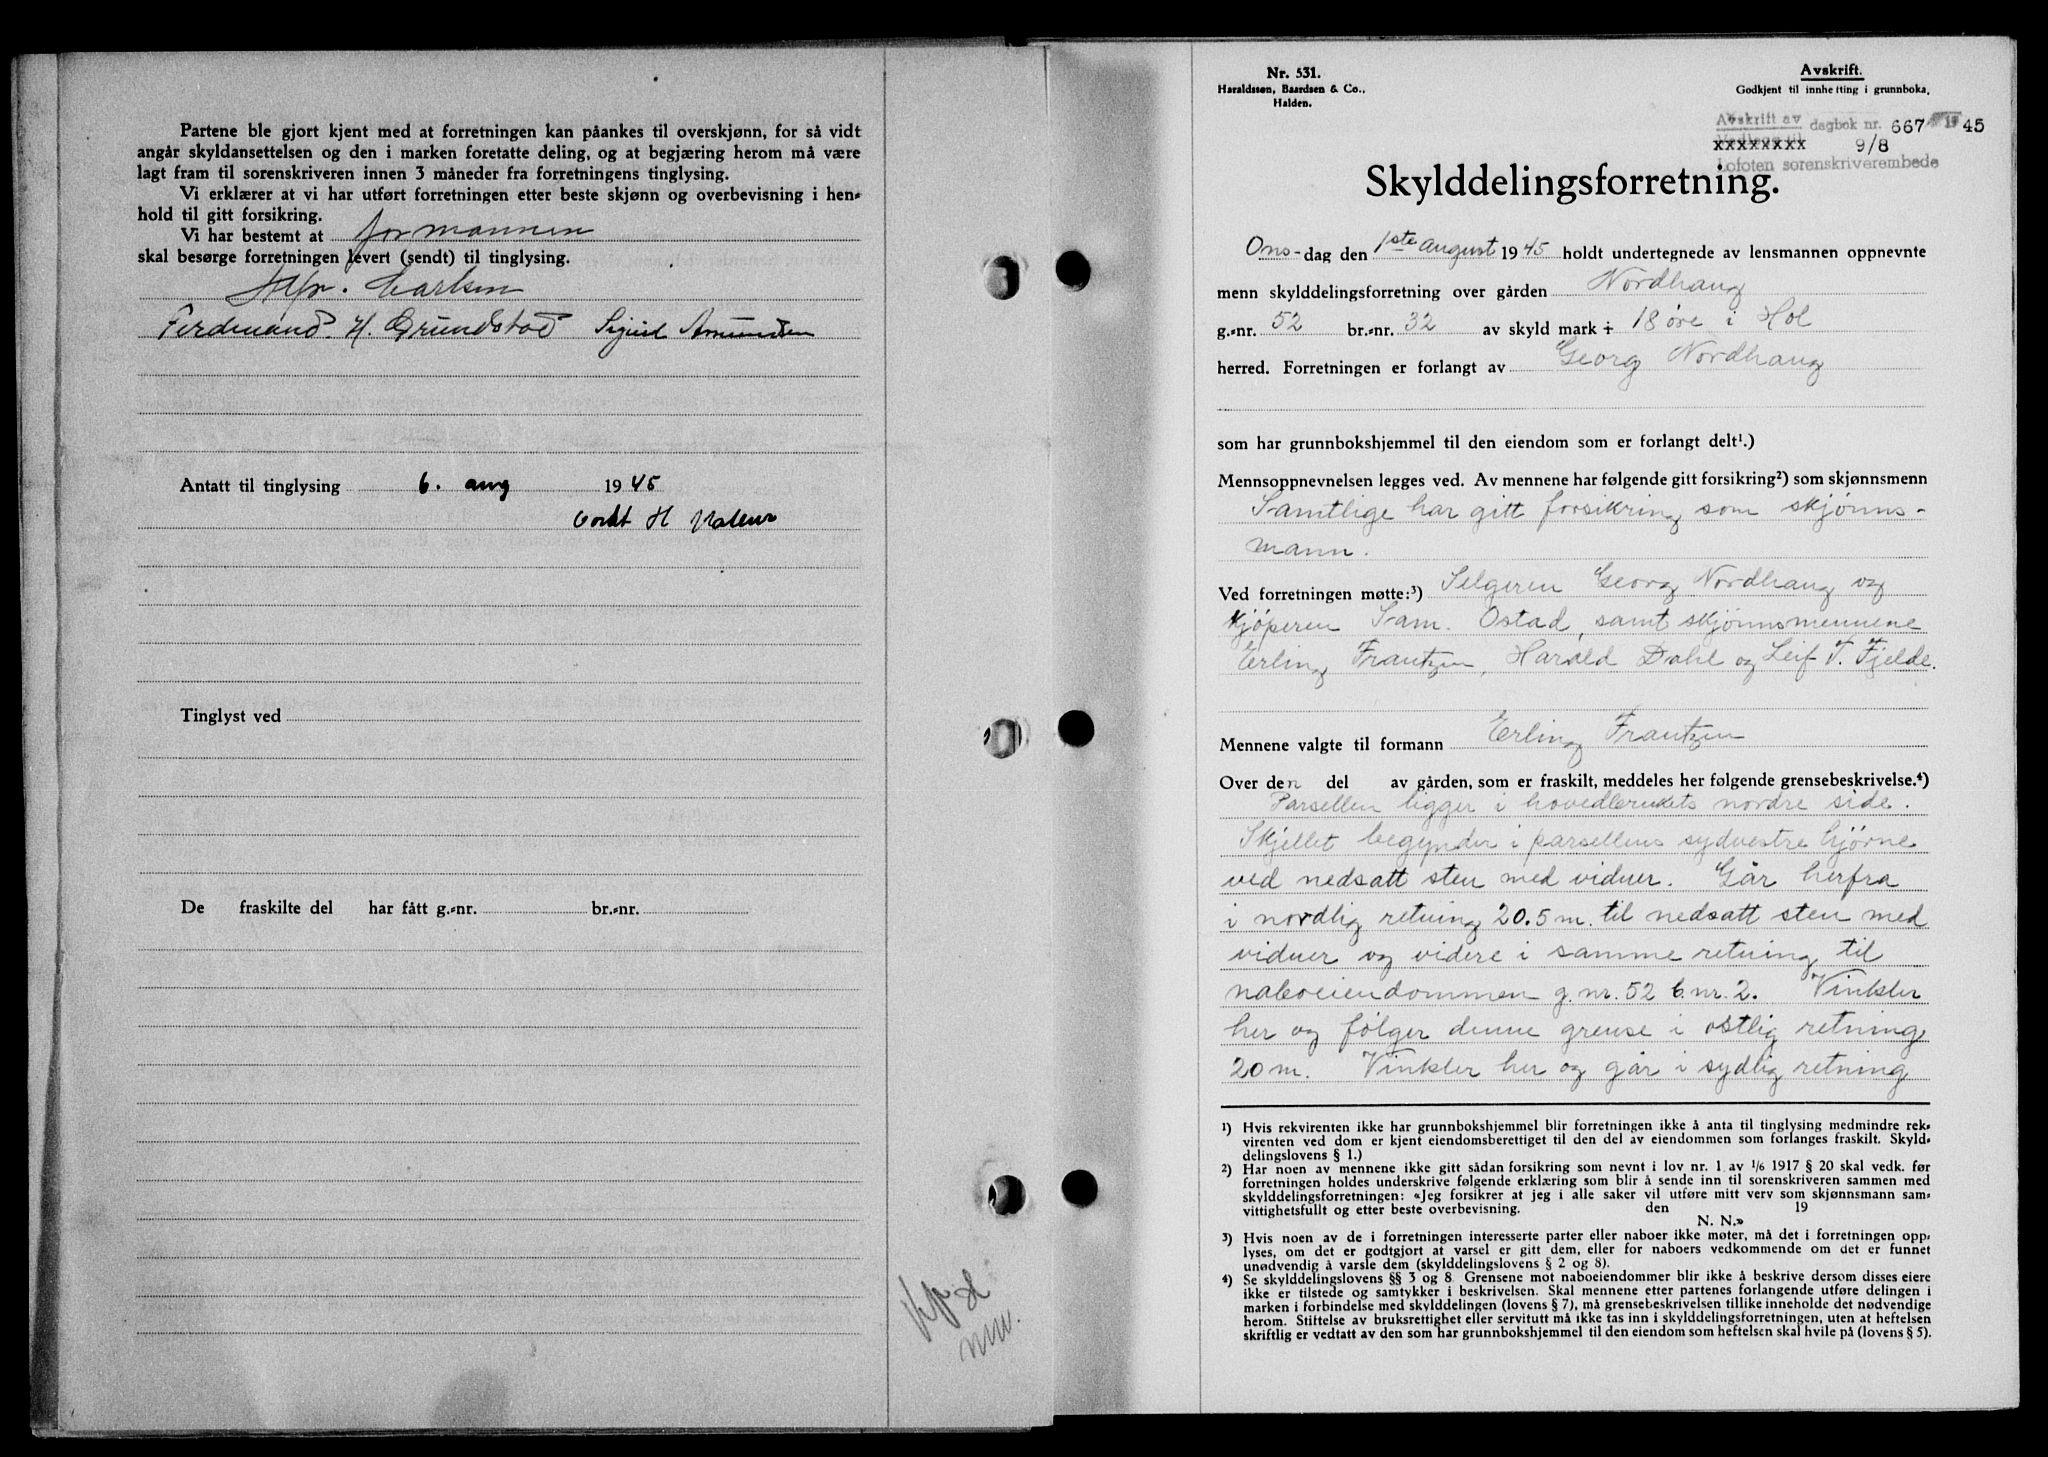 Partene ble gjort kjent med at forretningen kan påankes til overskjønn, for så vidt
angår skyldansettelsen og den i marken foretatte deling, og at begjæring herom må være
lagt fram til sorenskriveren innen 3 måneder fra forretningens tinglysing.
Vi erklærer at vi har utført forretningen etter beste skjønn og overbevisning i hen-
hold til gitt forsikring.
Vi har bestemt at formannen
skal besørge forretningen levert (sendt) til tinglysing.
Alfr. Carlsen
Ferdinand H. Grundstad Sigurd Amundsen
Antatt til tinglysing 6. aug 1945
Tinglyst ved
De fraskilte del har fått g.-nr. br.-nr.
Nr. 531.
Haraldssøn, Baardsen & Co.,
Halden.
Avskrift.
Godkjent til innhefting i grunnboka.
Avskrift av dagbok nr. 667 19 45
xxxxxxxx 9/8
Lofoten sorenskriverembede
Skylddelingsforretning.
Ons-dag den 1ste august 1945 holdt undertegnede av lensmannen oppnevnte
menn skylddelingsforretning over gården Nordhaug
g.-nr. 52 br.-nr. 32 av skyld mark ÷ 18 øre i Hol
herred. Forretningen er forlangt av Georg Nordhaug
som har grunnbokshjemmel til den eiendom som er forlangt delt¹.)
Mennsoppnevnelsen legges ved. Av mennene har følgende gitt forsikring²) som skjønnsmenn
Samtlige har gitt forsikring som skjønns-
mann.
Ved forretningen møtte:³) Selgeren Georg Nordhaug og
kjøperen Sam. Ostad, samt skjønnsmennene
Erling Frantzen, Harald Dahl og Leif T. Fjelde.
Mennene valgte til formann Erling Frantzen
Over den del av gården, som er fraskilt, meddeles her følgende grensebeskrivelse.⁴)
Parsellen ligger i hovedbrukets nordre side.
Skjellet begynder i parsellens sydvestre hjørne
ved nedsatt sten med vidner. Går herfra
i nordlig retning 20.5 m. til nedsatt sten med
vidner og videre i samme retning til
naboeiendommen g.nr. 52 b.nr. 2. Vinkler
her og følger denne grense i østlig retning
20 m. Vinkler her og går i sydlig retning
1) Hvis rekvirenten ikke har grunnbokshjemmel blir forretningen ikke å anta til tinglysing medmindre rek-
virenten ved dom er kjent eiendomsberettiget til den del av eiendommen som forlanges fraskilt. Skyld-
delingslovens § 1.)
2) Har noen av mennene ikke gitt sådan forsikring som nevnt i lov nr. 1 av 1/6 1917 § 20 skal vedk. før
forretningen holdes underskrive følgende erklæring som blir å sende inn til sorenskriveren sammen med
skylddelingsforretningen: «Jeg forsikrer at jeg i alle saker vil utføre mitt verv som skjønnsmann sam-
vittighetsfullt og etter beste overbevisning. den 19
N. N.»
3) Hvis noen av de i forretningen interesserte parter eller naboer ikke møter, må det i forretningen opp-
lyses, om det er godtgjort at varsel er gitt dem, eller for naboers vedkommende om det er funnet
unødvendig å varsle dem (skylddelingslovens § 2 og 8).
4) Se skylddelingslovens §§ 3 og 8. Grensene mot naboeiendommer blir ikke å beskrive dersom disses eiere
ikke er tilstede og samtykker i beskrivelsen. Skal mennene etter partenes forlangende utføre delingen i
marken i forbindelse med skylddelingen (lovens § 7), må grensebeskrivelsen tillike inneholde det nødvendige
herom. Stiftelse av bruksrettighet eller servitutt må ikke tas inn i skylddelingsforretningen, uten at heftelsen
skriftlig er vedtatt av den som har grunnbokshjemmel til den eiendom som heftelsen skal hvile på (lovens § 5).